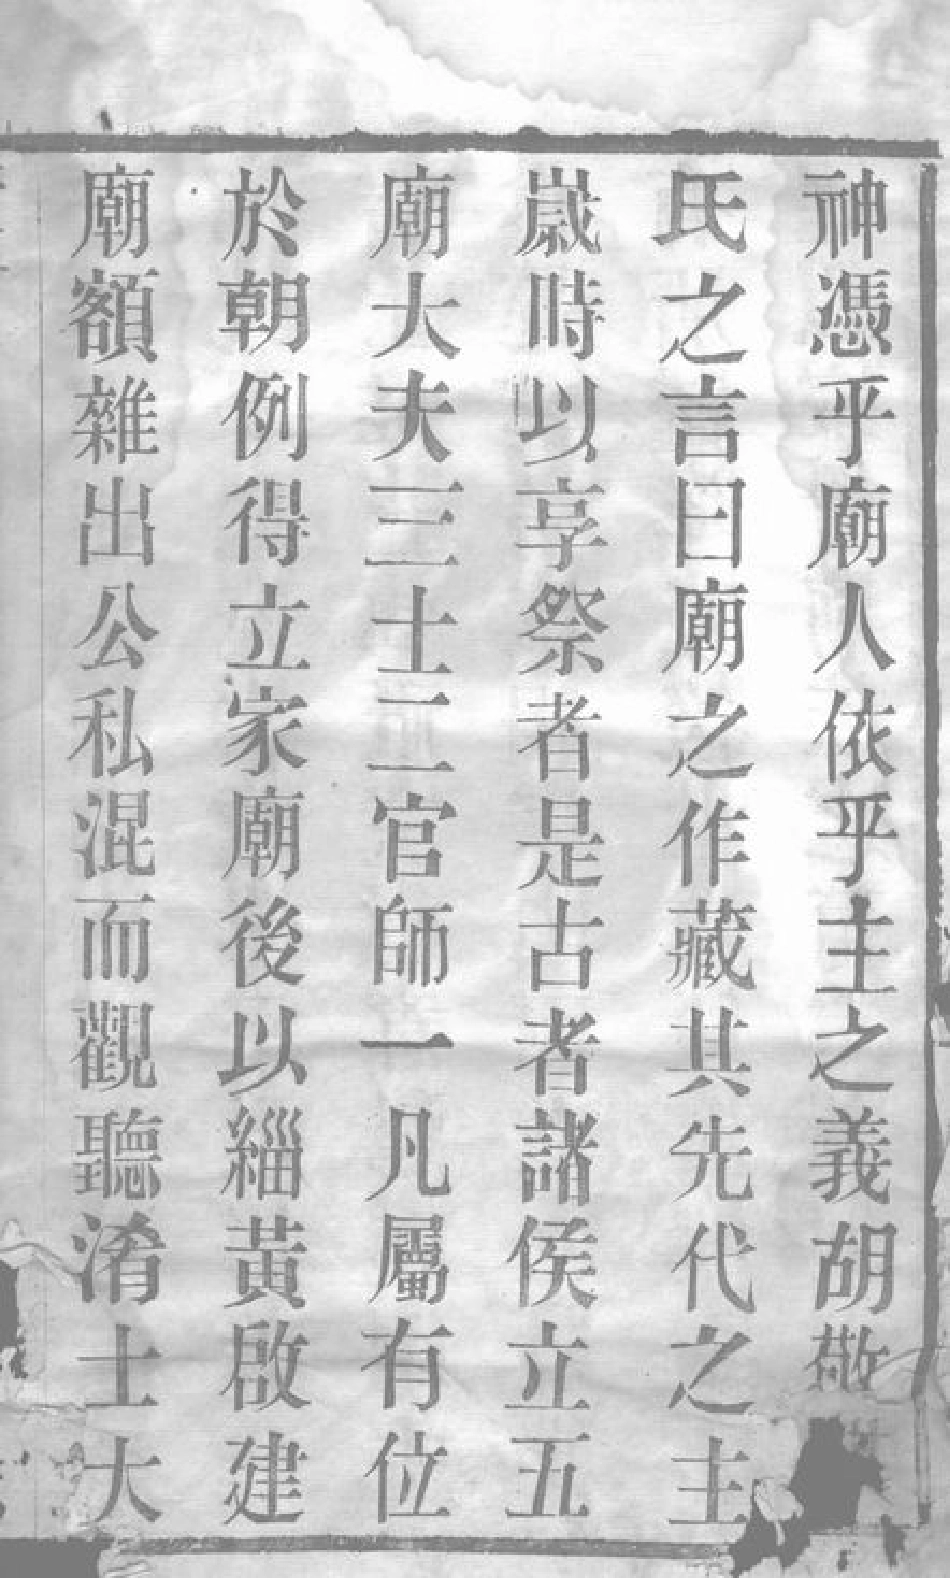 神憑乎廟人依乎主之義胡敬
氏之言曰廟之作藏其先代之主
嵗時以享祭者是古者諸侯立五
廟大夫三士二官師一凡屬有位
於朝例得立家廟後以緇黃啟建
廟額雜出公私混而觀聽淆士大